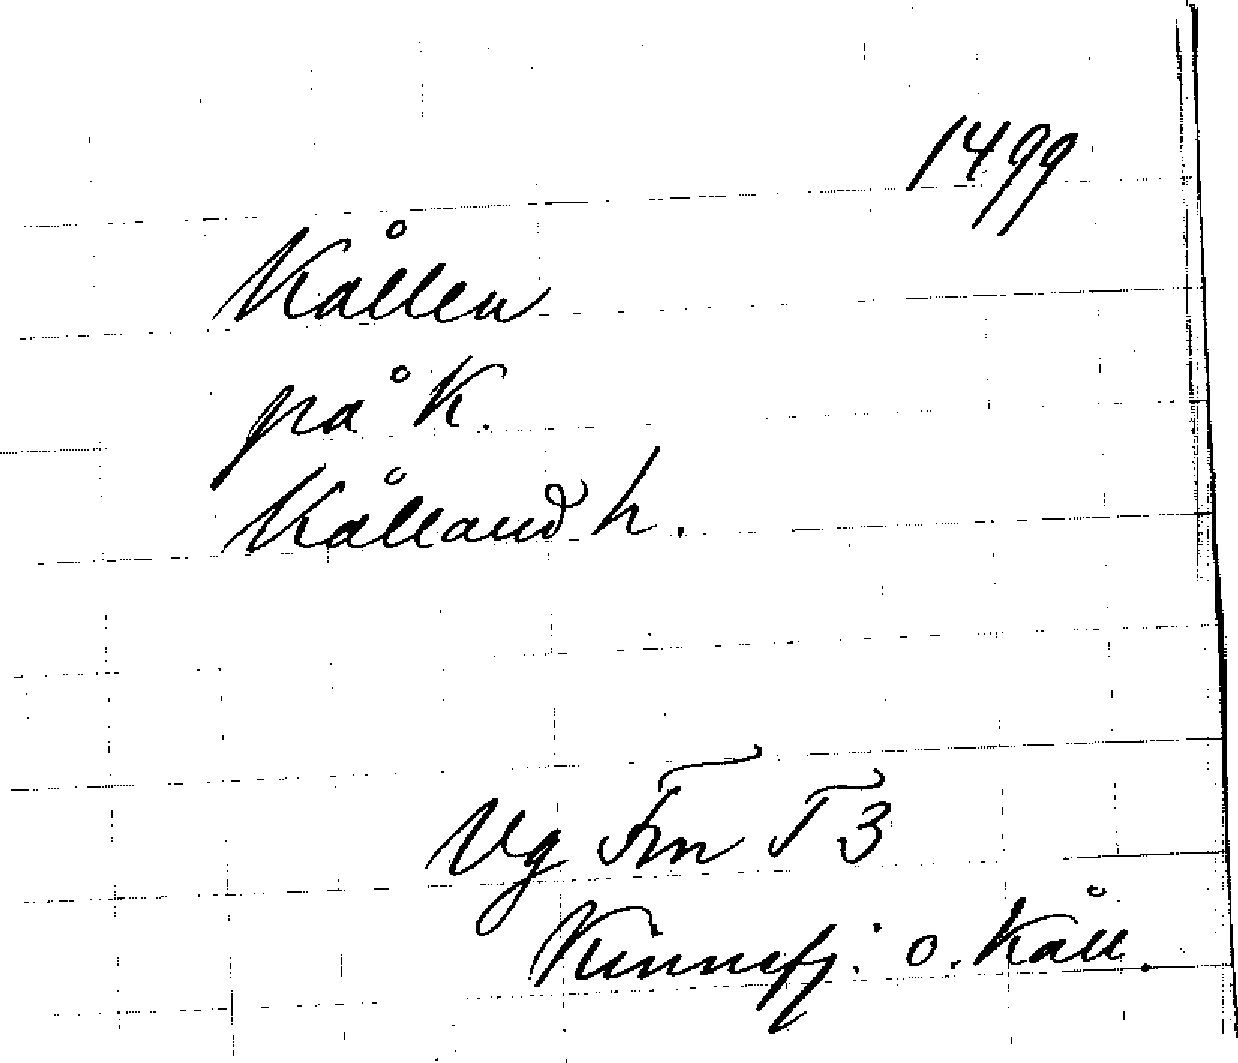 1499
Kållen
på K.
Kålland h.
Vg Fm T 3
Kinnefj. o. Kåll.